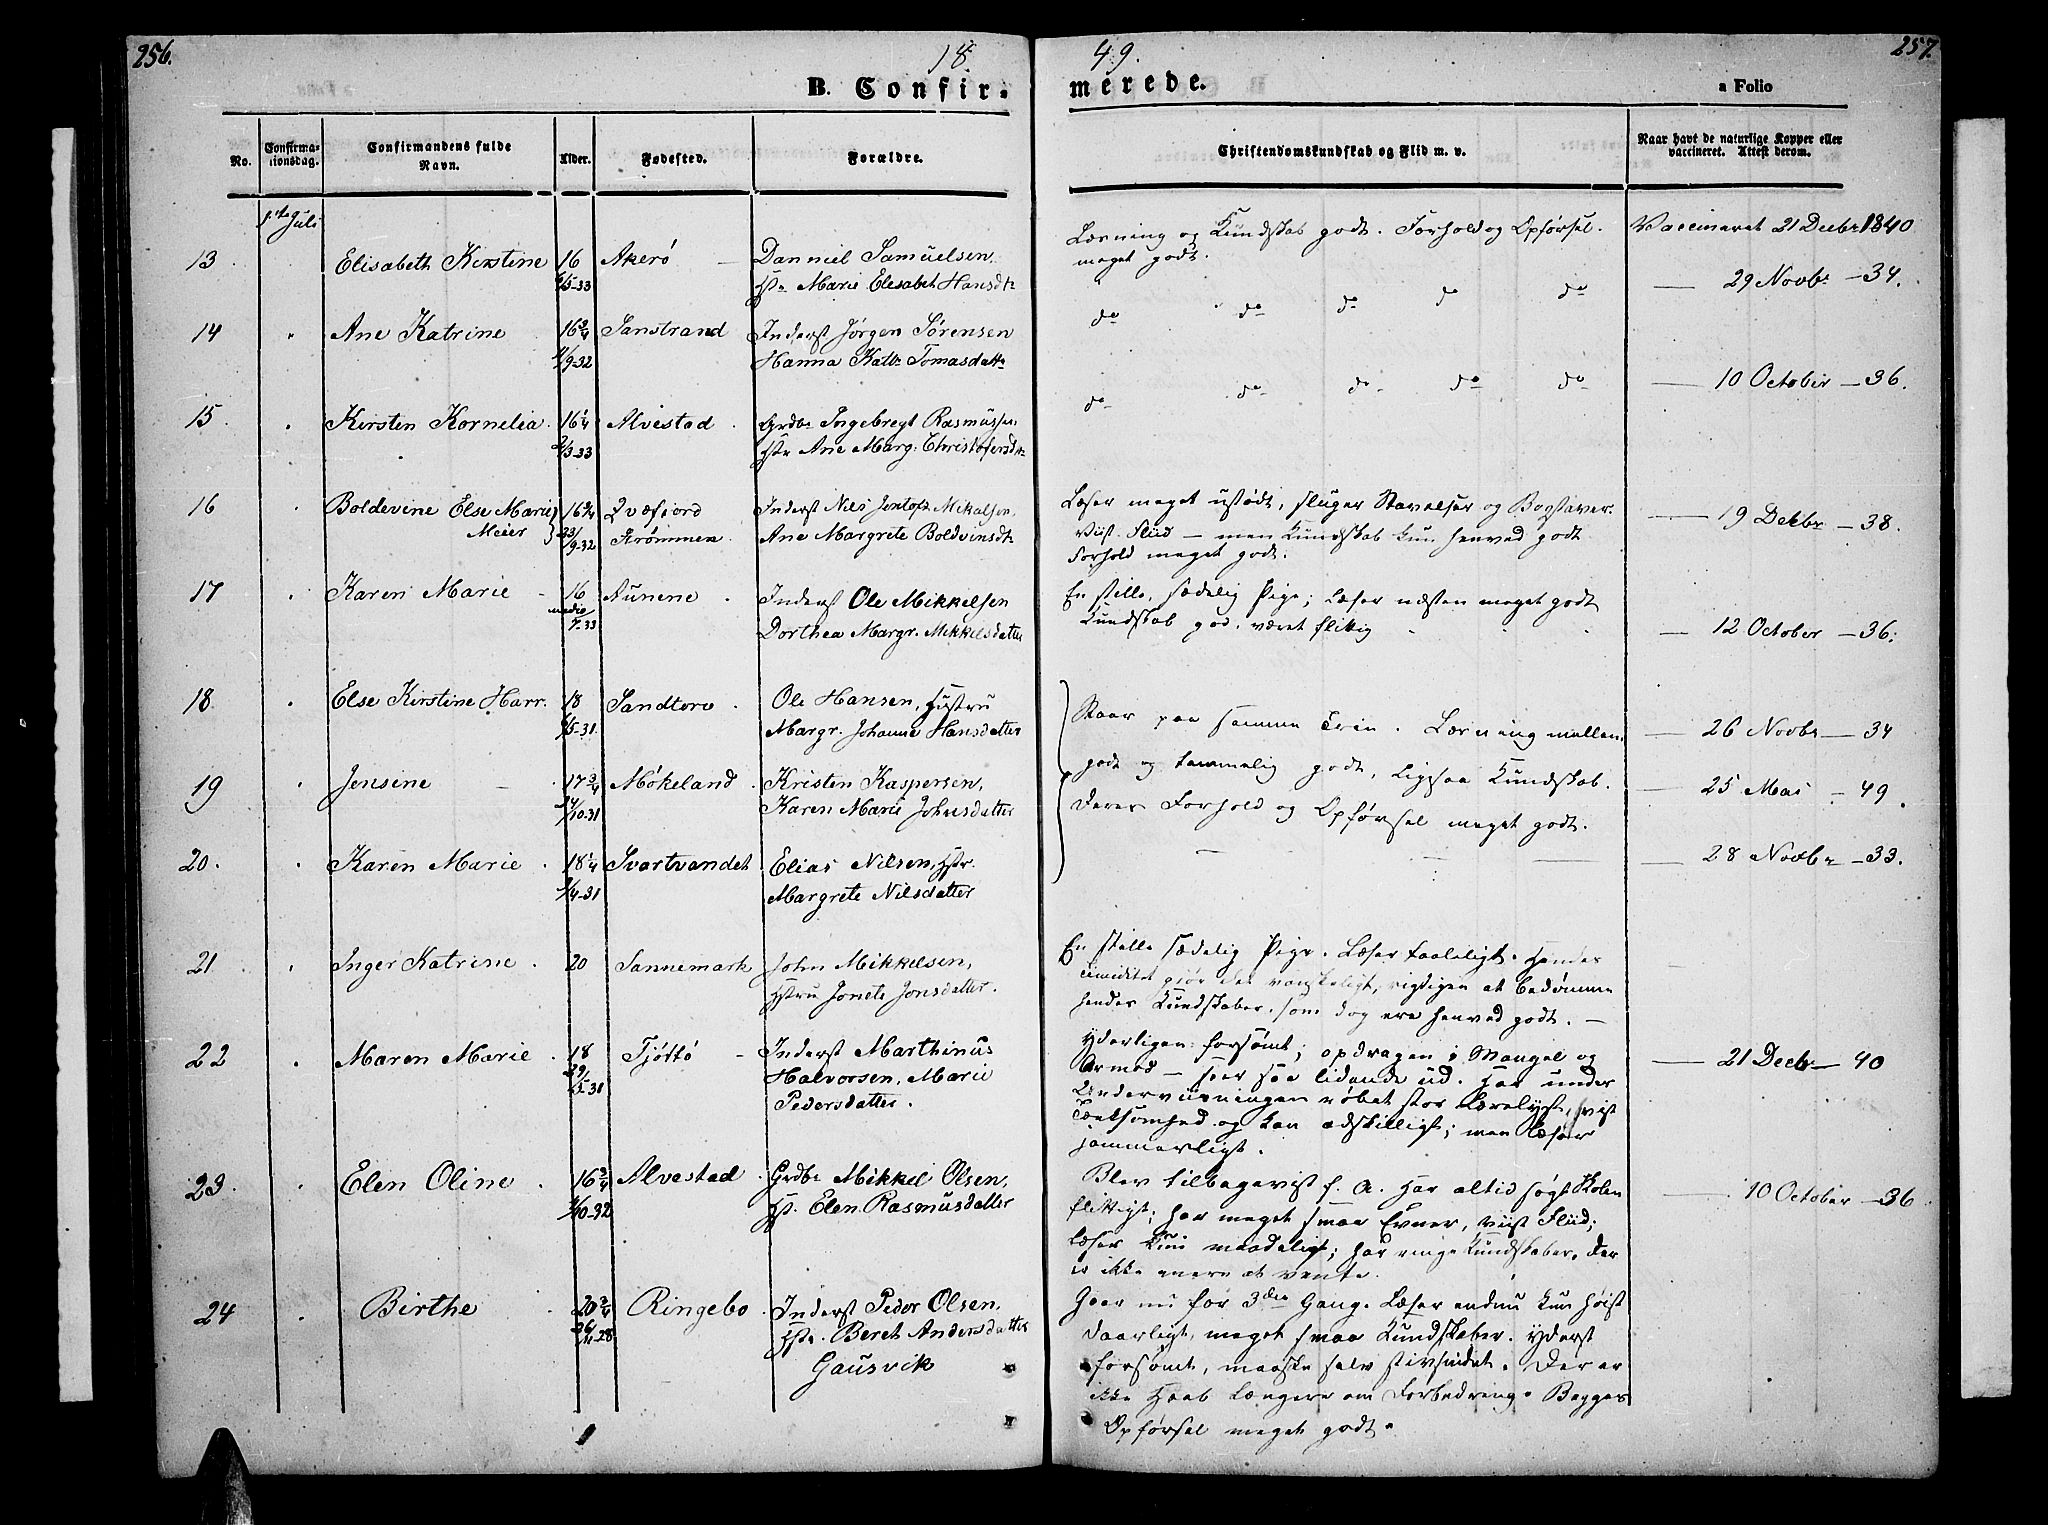 256.
18
49.
257.
B. Confir-
merede.
a Folio
No.
Confirma-
tionsdag.
Confirmandens fulde
Navn.
Alder.
Fødested.
Forældre.
Christendomskundskab og Flid m. v.
Naar havt de naturlige Kopper eller
vaccineret. Attest derom.
1ste Juli
13
Elisabeth Kirstine
16
5-33
Akerø
Danniel Samuelsen,
Hst. Marie Elesabet Hansdtr
Læsning og Kundskab godt. Forhold og Opførsel
meget godt.
Vaccineret 21 Decbr 1840
14
Ane Katrine
16 3/4
9-32
Sanstrand
Inderst Jørgen Sørensen
Hanna Katr. Tomasdattr
do do do do do
— 29 Novbr — 34.
15
Kirsten Kornelia
16 1/4
3-33
Alvestad
Grdbr Ingebregt Rasmussen
Hst. Ane Marg: Christofersdtr
do do do do do
— 10 October — 36.
16
Boldevine Else Marie
Meier
16 3/4
23/9-32
Qvæfjord
Strømmen
Inderst Nils Jentoft Mikalsen,
Ane Margrete Boldvinsdtr
Læser meget ustødt, sluger Stavelser og Bogstaver.
Viist Fliid — men Kundskab kun henved godt
Forhold meget godt.
— 19 Decbr — 38.
17
Karen Marie
16
medio
7-33
Aunene
Inderst Ole Mikkelsen
Dorthea Margr. Mikkelsdatter
En stille, sædelig Pige; læser næsten meget godt
Kundskab god, været flittig
— 12 October — 36.
18
Else Kirstine Harr.
18
5-31
Sandtorv
Ole Hansen, Hustru
Margr. Johanne Hansdatter
Staar paa samme Trin. Læsning mellem
— 26 Novbr — 34
19
Jensine
17 3/4
10-31
Møkeland
Kristen Kaspersen,
Karen Marie Johnsdatter
godt og temmelig godt, ligesaa Kundskab.
Deres Forhold og Opførsel meget godt.
— 25 Mai — 49.
20.
Karen Marie
18 1/4
4-31
Svartvandet
Elias Nilsen, Hstr.
Margrete Nilsdatter
— 28 Novbr — 33.
21
Inger Katrine
20
Sannemark
John Mikkelsen,
Hstru Jonete Jonsdatter.
En stille sædelig Pige. Læser taaleligt. Hendes
Timiditet gjør det vanskeligt, rigtigen at bedømme
hendes Kundskaber, som dog ere henved godt. —
22
Maren Marie
18
29/5-31
Tjøttø
Inderst Marthinus
Halvorsen, Marie
Pedersdatter.
Yderligen forsømt; opdragen i Mangel og
Armod — seer saa lidende ud. Har under
Underviisningen røbet stor Lærelyst, viist
Tænksomhed og kan adskilligt; men læser
jammerligt.
— 21 Decbr — 40
23
Elen Oline
16 3/4
10-32
Alvestad
Grdbr Mikkel Olsen,
Hst. Elen Rasmusdatter
Blev tilbageviist f. A. Har altid søgt Skolen
flittigt; har meget smaa Evner, viist Fliid;
læser kun maadeligt; har ringe Kundskaber. Der
er ikke mere at vente.
10 October — 36
24
Birthe
20 3/4
26/11-28
Ringebo
Inderst Peder Olsen,
Hstr. Beret Andersdatter
Gausvik
Gaar nu for 3die Gang. Læser endnu kun høist
daarligt, meget smaa Kundskaber. Yderst
forsømt, maaske selv stivsindet. Der er
ikke Haab længere om Forbedring. Begges
Opførsel meget godt.